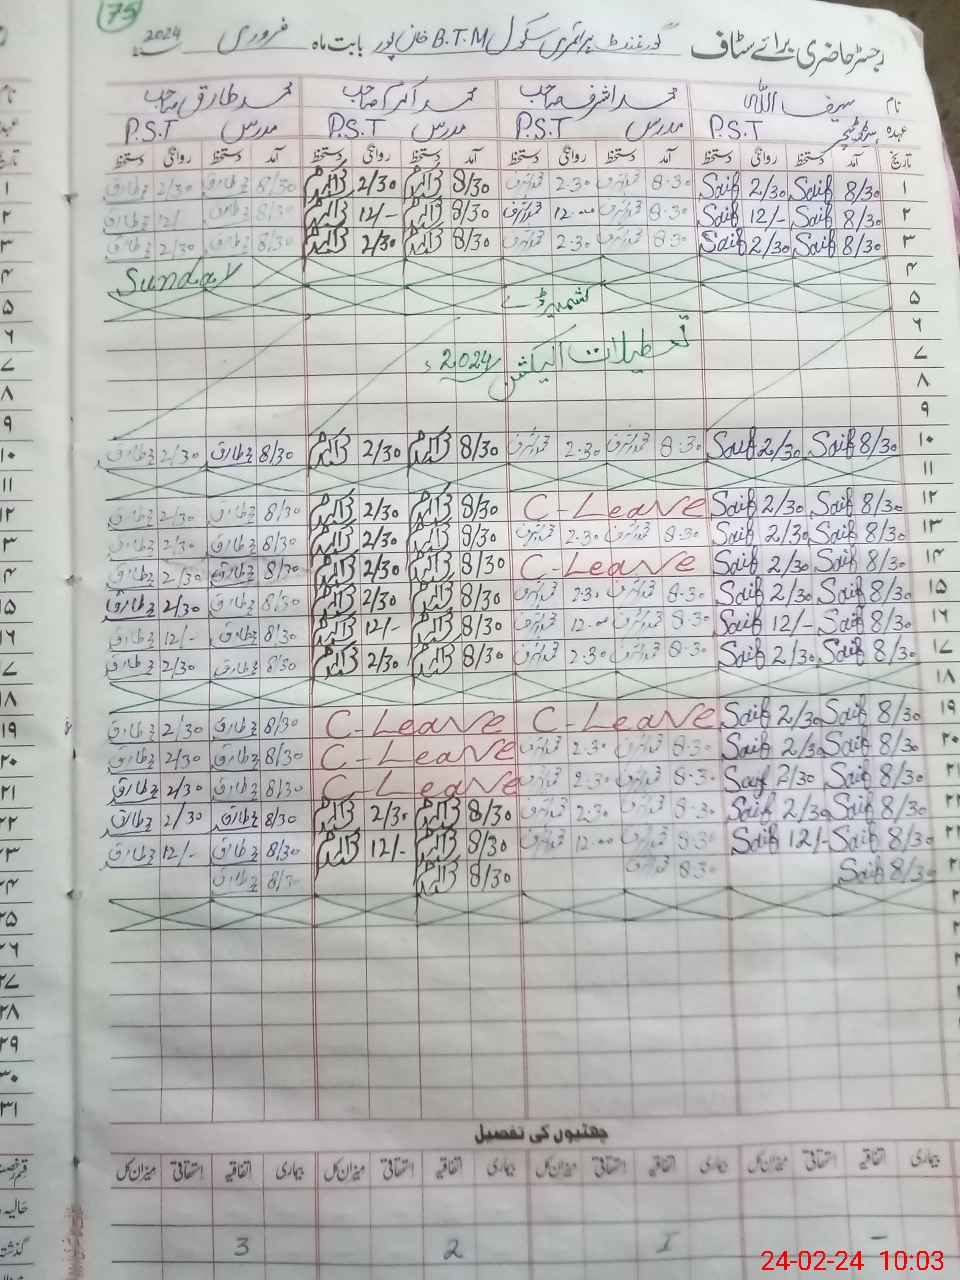 75
رجسٹر حاضری برائے سٹاف گورنمنٹ پرائمری سکول B.T.M خان پور بابت ماہ فروری 2024
نام سیف اللہ محمد اشرف صاحب محمد اکرم صاحب محمد طارق صاحب
عہدہ P.S.T مدرس P.S.T مدرس P.S.T مدرس P.S.T
تاریخ آمد دستخط روانگی دستخط آمد دستخط روانگی دستخط آمد دستخط روانگی دستخط آمد دستخط روانگی دستخط
۱ 8/30 Saif 2/30 Saif 8.30 محمد اشرف 2.30 محمد اشرف 8/30 اکرم 2/30 اکرم 8/30 طارق 2/30 طارق
۲ 8/30 Saif 12/- Saif 8.30 محمد اشرف 12.00 محمد اشرف 8/30 اکرم 12/- اکرم 8/30 طارق 12/- طارق
۳ 8/30 Saif 2/30 Saif 8.30 محمد اشرف 2.30 محمد اشرف 8/30 اکرم 2/30 اکرم 8/30 طارق 2/30 طارق
۴ Sunday
۵ کشمیر ڈے
۶
۷ تعطیلات الیکشن 2024ء
۸
۹
۱۰ 8/30 Saif 2/30 Saif 8.30 محمد اشرف 2.30 محمد اشرف 8/30 اکرم 2/30 اکرم 8/30 طارق 2/30 طارق
۱۱
۱۲ 8/30 Saif 2/30 Saif C-Leave 8/30 اکرم 2/30 اکرم 8/30 طارق 2/30 طارق
۱۳ 8/30 Saif 2/30 Saif 8.30 محمد اشرف 2.30 محمد اشرف 8/30 اکرم 2/30 اکرم 8/30 طارق 2/30 طارق
۱۴ 8/30 Saif 2/30 Saif C-Leave 8/30 اکرم 2/30 اکرم 8/30 طارق 2/30 طارق
۱۵ 8/30 Saif 2/30 Saif 8.30 محمد اشرف 2.30 محمد اشرف 8/30 اکرم 2/30 اکرم 8/30 طارق 2/30 طارق
۱۶ 8/30 Saif 12/- Saif 8.30 محمد اشرف 12.00 محمد اشرف 8/30 اکرم 12/- اکرم 8/30 طارق 12/- طارق
۱۷ 8/30 Saif 2/30 Saif 8.30 محمد اشرف 2.30 محمد اشرف 8/30 اکرم 2/30 اکرم 8/30 طارق 2/30 طارق
۱۸
۱۹ 8/30 Saif 2/30 Saif C-Leave C-Leave 8/30 طارق 2/30 طارق
۲۰ 8/30 Saif 2/30 Saif 8.30 محمد اشرف 2.30 محمد اشرف C-Leave 8/30 طارق 2/30 طارق
۲۱ 8/30 Saif 2/30 Saif 8.30 محمد اشرف 2.30 محمد اشرف C-Leave 8/30 طارق 2/30 طارق
۲۲ 8/30 Saif 2/30 Saif 8.30 محمد اشرف 2.30 محمد اشرف 8/30 اکرم 2/30 اکرم 8/30 طارق 2/30 طارق
۲۳ 8/30 Saif 12/- Saif 8.30 محمد اشرف 12.00 محمد اشرف 8/30 اکرم 12/- اکرم 8/30 طارق 12/- طارق
۲۴ 8/30 Saif 8.30 محمد اشرف 8/30 اکرم 8/30 طارق
۲۵
۲۶
۲۷
۲۸
۲۹
۳۰
۳۱
چھٹیوں کی تفصیل
بیماری اتفاقیہ استحقاقی میزان کل بیماری اتفاقیہ استحقاقی میزان کل بیماری اتفاقیہ استحقاقی میزان کل بیماری اتفاقیہ استحقاقی میزان کل
حالیہ
- 1 2 3
24-02-24 10:03